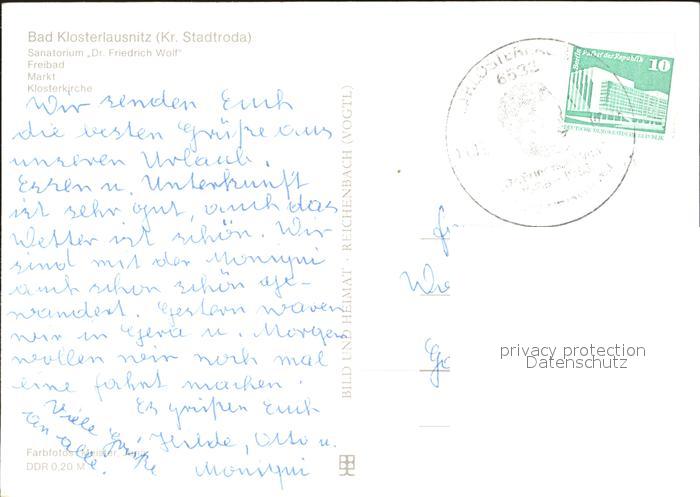 Bad Klosterlausnitz (Kr. Stadtroda)
Sanatorium „Dr. Friedrich Wolf"
Freibad
Markt
Klosterkirche
Wir senden Euch
die besten Grüße aus
unseren Urlaub.
Essen u. Unterkunft
ist sehr gut, auch das
Wetter ist schön. Wir
sind mit der Moniqui
auch schon schön ge-
wandert. Gestern waren
wir in Gera u. Morgen
wollen wir noch mal
eine fahrt machen.
Es grüßen Euch
Hilde, Otto u.
Moniqui
Viele Grüße
an alle.
Farbfotos: Meister, Jena
DDR 0,20 M
BILD UND HEIMAT · REICHENBACH (VOGTL)
6532
Berlin Palast der Republik
10
DEUTSCHE DEMOKRATISCHE REPUBLIK
privacy protection
Datenschutz